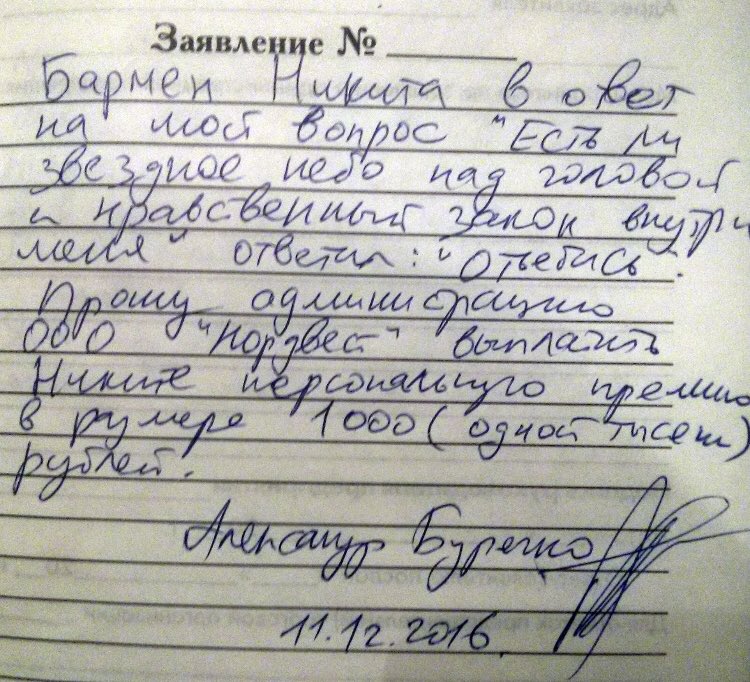 Заявление № ______
Бармен Никита в ответ
на мой вопрос "Есть ли
звездное небо над головой
и нравственный закон внутри
меня" ответил: "Отъебись".
Прошу администрацию
ООО "Нордвест" выплатить
Никите персональную премию
в размере 1000 (одной тысячи)
рублей.
Александр Буренко
11.12.2016.